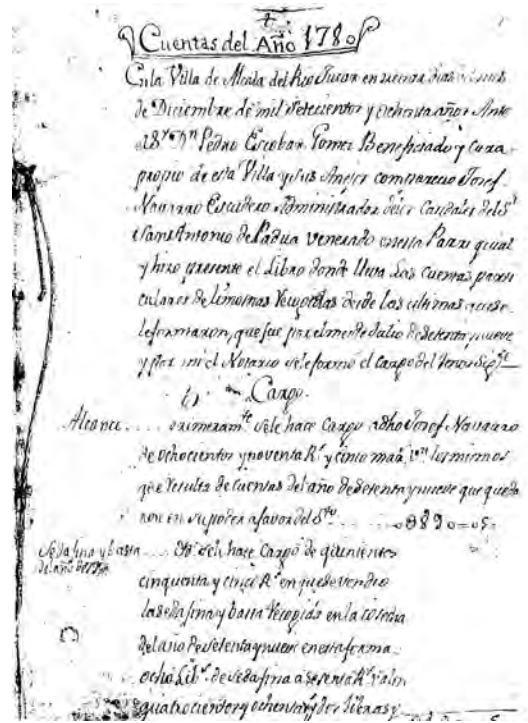 Cuentas del Año 1780
En la Villa de Alcala del Rio Jucar en veinte dias del mes
de Diciembre de mil setecientos y ochenta años Ante
el Sr Dn Pedro Escobar Gomez Beneficiado y Cura
propio de esta Villa y sus Anejos comparecio Josef
Navarro Escudero Administrador de los Caudales del Sr
San Antonio de Padua venerado en esta Parroquial
y hizo presente el Libro donde lleva las Cuentas parti
culares de limosnas recogidas desde las ultimas que se
le formaron, que fue por el mes de Julio de setenta y nueve
y por mi el Notario se le formó el cargo del tenor Sigte
Cargo.
Alcance.... Primeramte se le hace Cargo a dho Josef Navarro
de ochocientos y noventa Rs y cinco mrs vn los mismos
que resulta de cuentas del año de setenta y nueve que queda
ron en su poder a favor del Sto ..... 0890=05
Seda fina y basta
del año de 1779 .... Yt. se le hace Cargo de quinientos
cinquenta y cinco Rs en que se vendio
la seda fina y basta recogida en la cosecha
del año de setenta y nueve en esta forma
ocho Libs de seda fina a sesenta Rs valen
quatrocientos y ochenta y dos libras y